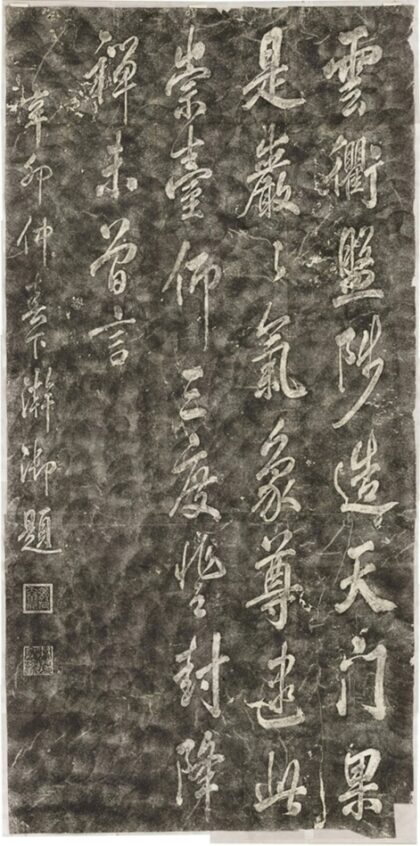 雲衢盤陟造天門果
是巖〻氣象尊逮此
崇臺仰三度登封降
禪未曾言
辛卯仲春下澣御題